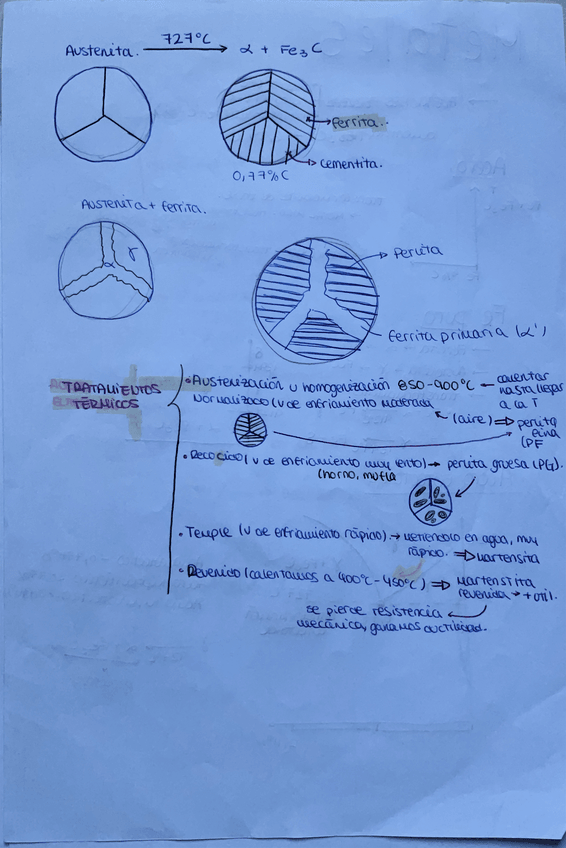 Austenita. 727ºC α + Fe3C
Ferrita.
Cementita.
0,77%C
Austenita + ferrita.
γ
α
Perlita
ferrita primaria (α')
TRATAMIENTOS
TÉRMICOS
• Austenización u homogenización 850-900ºC ← calentar
hasta llegar
a la T
Normalizado (v de enfriamiento moderada
(aire) ⇒ perlita
fina
(PF
• Recocido (v de enfriamiento muy lento) → perlita gruesa (PG).
(horno, mufla
• Temple (v de enfriamiento rápido). → metiendolo en agua, muy
rápido. ⇒ Martensita
• Revenido (calentamos a 400ºC-450ºC) ⇒ Martensita
revenida → + útil.
se pierde resistencia
mecánica, ganamos ductilidad.